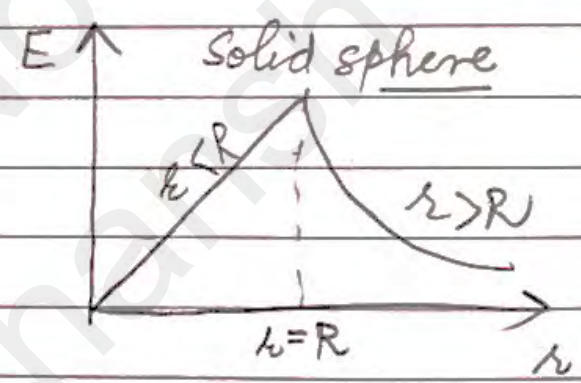 E
Solid sphere
r<R
r>R
r=R
r